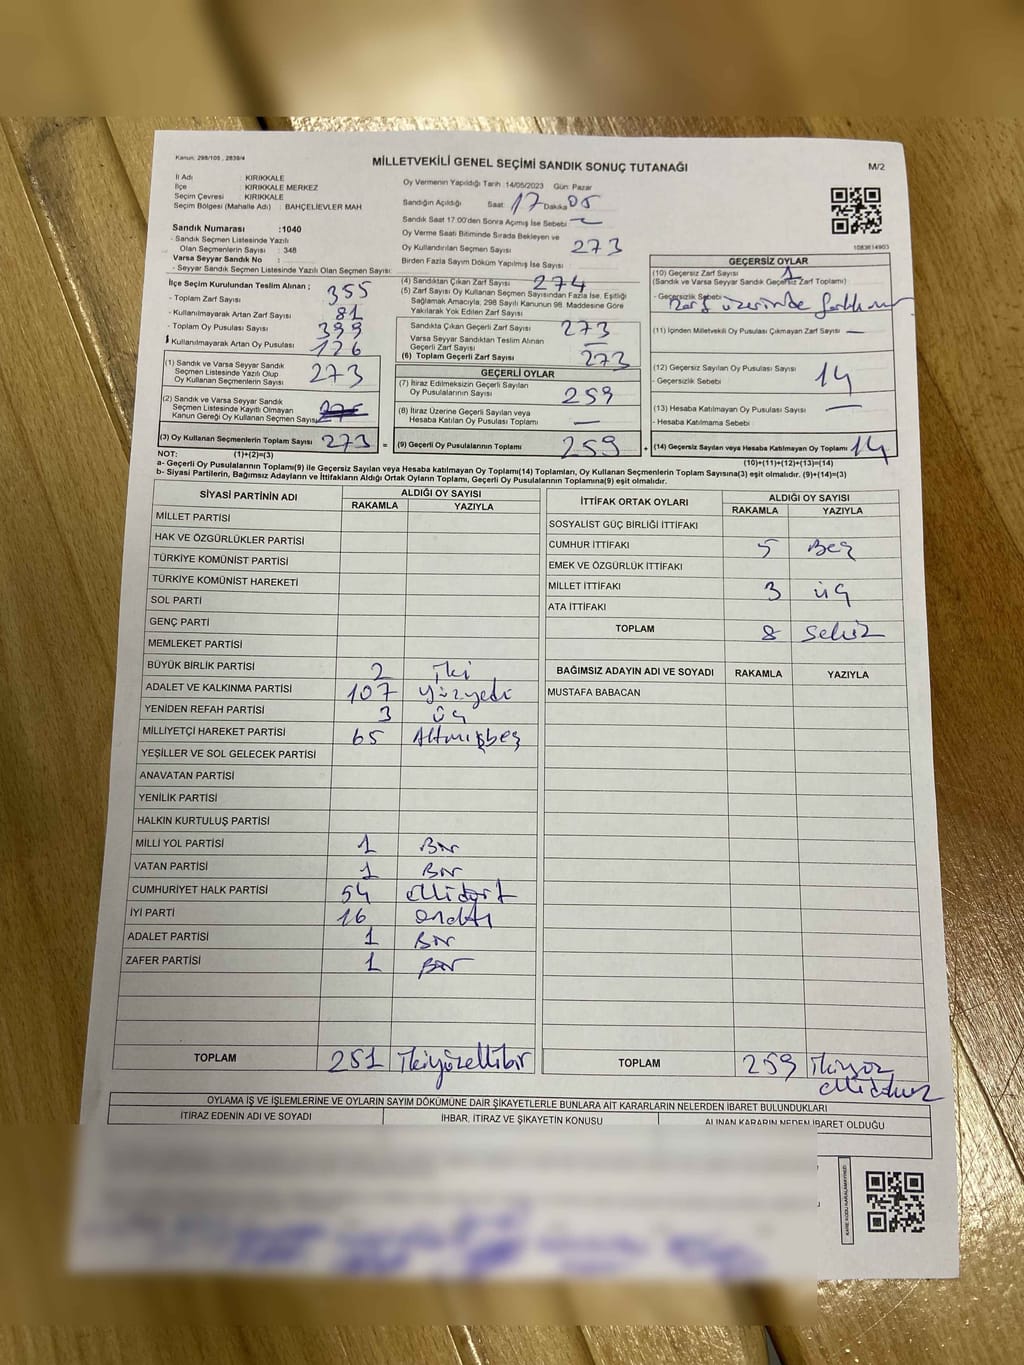 Kanun: 298/105 , 2839/4
MİLLETVEKİLİ GENEL SEÇİMİ SANDIK SONUÇ TUTANAĞI
M/2
İl Adı : KIRIKKALE
İlçe : KIRIKKALE MERKEZ
Seçim Çevresi : KIRIKKALE
Seçim Bölgesi (Mahalle Adı) : BAHÇELİEVLER MAH
Sandık Numarası :1040
- Sandık Seçmen Listesinde Yazılı
Olan Seçmenlerin Sayısı : 348
Varsa Seyyar Sandık No :
- Seyyar Sandık Seçmen Listesinde Yazılı Olan Seçmen Sayısı:
Oy Vermenin Yapıldığı Tarih :14/05/2023 Gün: Pazar
Sandığın Açıldığı Saat: 17 Dakika 05
Sandık Saat 17.00'den Sonra Açılmış İse Sebebi:
Oy Verme Saati Bitiminde Sırada Bekleyen ve
Oy Kullandırılan Seçmen Sayısı 273
Birden Fazla Sayım Döküm Yapılmış İse Sayısı
1083614903
İlçe Seçim Kurulundan Teslim Alınan ;
- Toplam Zarf Sayısı 355
- Kullanılmayarak Artan Zarf Sayısı 81
- Toplam Oy Pusulası Sayısı 399
- Kullanılmayarak Artan Oy Pusulası 126
(1) Sandık ve Varsa Seyyar Sandık
Seçmen Listesinde Yazılı Olup
Oy Kullanan Seçmenlerin Sayısı 273
(2) Sandık ve Varsa Seyyar Sandık
Seçmen Listesinde Kayıtlı Olmayan
Kanun Gereği Oy Kullanan Seçmen Sayısı
(3) Oy Kullanan Seçmenlerin Toplam Sayısı 273 =
(4) Sandıktan Çıkan Zarf Sayısı 274
(5) Zarf Sayısı Oy Kullanan Seçmen Sayısından Fazla İse, Eşitliği
Sağlamak Amacıyla, 298 Sayılı Kanunun 98. Maddesine Göre
Yakılarak Yok Edilen Zarf Sayısı
Sandıkta Çıkan Geçerli Zarf Sayısı 273
Varsa Seyyar Sandıktan Teslim Alınan
Geçerli Zarf Sayısı —
(6) Toplam Geçerli Zarf Sayısı 273
GEÇERLİ OYLAR
(7) İtiraz Edilmeksizin Geçerli Sayılan
Oy Pusulalarının Sayısı 259
(8) İtiraz Üzerine Geçerli Sayılan veya
Hesaba Katılan Oy Pusulası Sayısı —
(9) Geçerli Oy Pusulalarının Toplamı 259 +
GEÇERSİZ OYLAR
(10) Geçersiz Zarf Sayısı 1
(Sandık ve Varsa Seyyar Sandık Geçersiz Zarf Toplamı)
- Geçersizlik Sebebi Zarf üzerinde
(11) İçinden Milletvekili Oy Pusulası Çıkmayan Zarf Sayısı —
(12) Geçersiz Sayılan Oy Pusulası Sayısı 14
- Geçersizlik Sebebi
(13) Hesaba Katılmayan Oy Pusulası Sayısı —
- Hesaba Katılmama Sebebi
(14) Geçersiz Sayılan veya Hesaba Katılmayan Oy Toplamı 14
NOT: (1)+(2)=(3) (10)+(11)+(12)+(13)=(14)
a- Geçerli Oy Pusulalarının Toplamı(9) ile Geçersiz Sayılan veya Hesaba katılmayan Oy Toplamı(14) Toplamları, Oy Kullanan Seçmenlerin Toplam Sayısına(3) eşit olmalıdır. (9)+(14)=(3)
b- Siyasi Partilerin, Bağımsız Adayların ve İttifakların Aldığı Ortak Oyların Toplamı, Geçerli Oy Pusulalarının Toplamına(9) eşit olmalıdır.
SİYASİ PARTİNİN ADI ALDIĞI OY SAYISI
RAKAMLA YAZIYLA
MİLLET PARTİSİ
HAK VE ÖZGÜRLÜKLER PARTİSİ
TÜRKİYE KOMÜNİST PARTİSİ
TÜRKİYE KOMÜNİST HAREKETİ
SOL PARTİ
GENÇ PARTİ
MEMLEKET PARTİSİ
BÜYÜK BİRLİK PARTİSİ 2 iki
ADALET VE KALKINMA PARTİSİ 107 yüzyedi
YENİDEN REFAH PARTİSİ 3 üç
MİLLİYETÇİ HAREKET PARTİSİ 65 Altmışbeş
YEŞİLLER VE SOL GELECEK PARTİSİ
ANAVATAN PARTİSİ
YENİLİK PARTİSİ
HALKIN KURTULUŞ PARTİSİ
MİLLİ YOL PARTİSİ 1 Bir
VATAN PARTİSİ 1 Bir
CUMHURİYET HALK PARTİSİ 54 ellidört
İYİ PARTİ 16 onaltı
ADALET PARTİSİ 1 Bir
ZAFER PARTİSİ 1 Bir
TOPLAM 251 ikiyüzellibir
İTTİFAK ORTAK OYLARI ALDIĞI OY SAYISI
RAKAMLA YAZIYLA
SOSYALİST GÜÇ BİRLİĞİ İTTİFAKI
CUMHUR İTTİFAKI 5 Beş
EMEK VE ÖZGÜRLÜK İTTİFAKI
MİLLET İTTİFAKI 3 üç
ATA İTTİFAKI
TOPLAM 8 sekiz
BAĞIMSIZ ADAYIN ADI VE SOYADI RAKAMLA YAZIYLA
MUSTAFA BABACAN
TOPLAM 259 ikiyüz
ellidokuz
OYLAMA İŞ VE İŞLEMLERİNE VE OYLARIN SAYIM DÖKÜMÜNE DAİR ŞİKAYETLERLE BUNLARA AİT KARARLARIN NELERDEN İBARET BULUNDUKLARI
İTİRAZ EDENİN ADI VE SOYADI İHBAR, İTİRAZ VE ŞİKAYETİN KONUSU ALINAN KARARIN NEDEN İBARET OLDUĞU
KARE KODU KARALAMAYINIZ!